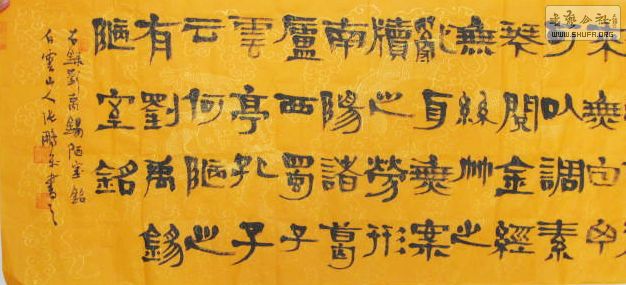 书艺公社
WWW.SHUFA.ORG
来無白丁
可以調素
琴閱金經
無絲竹之
亂耳無案
牘之勞形
南陽諸葛
廬西蜀子
雲亭孔子
云何陋之
有劉禹錫
陋室銘
右録劉禹錫陋室銘
白雲山人書